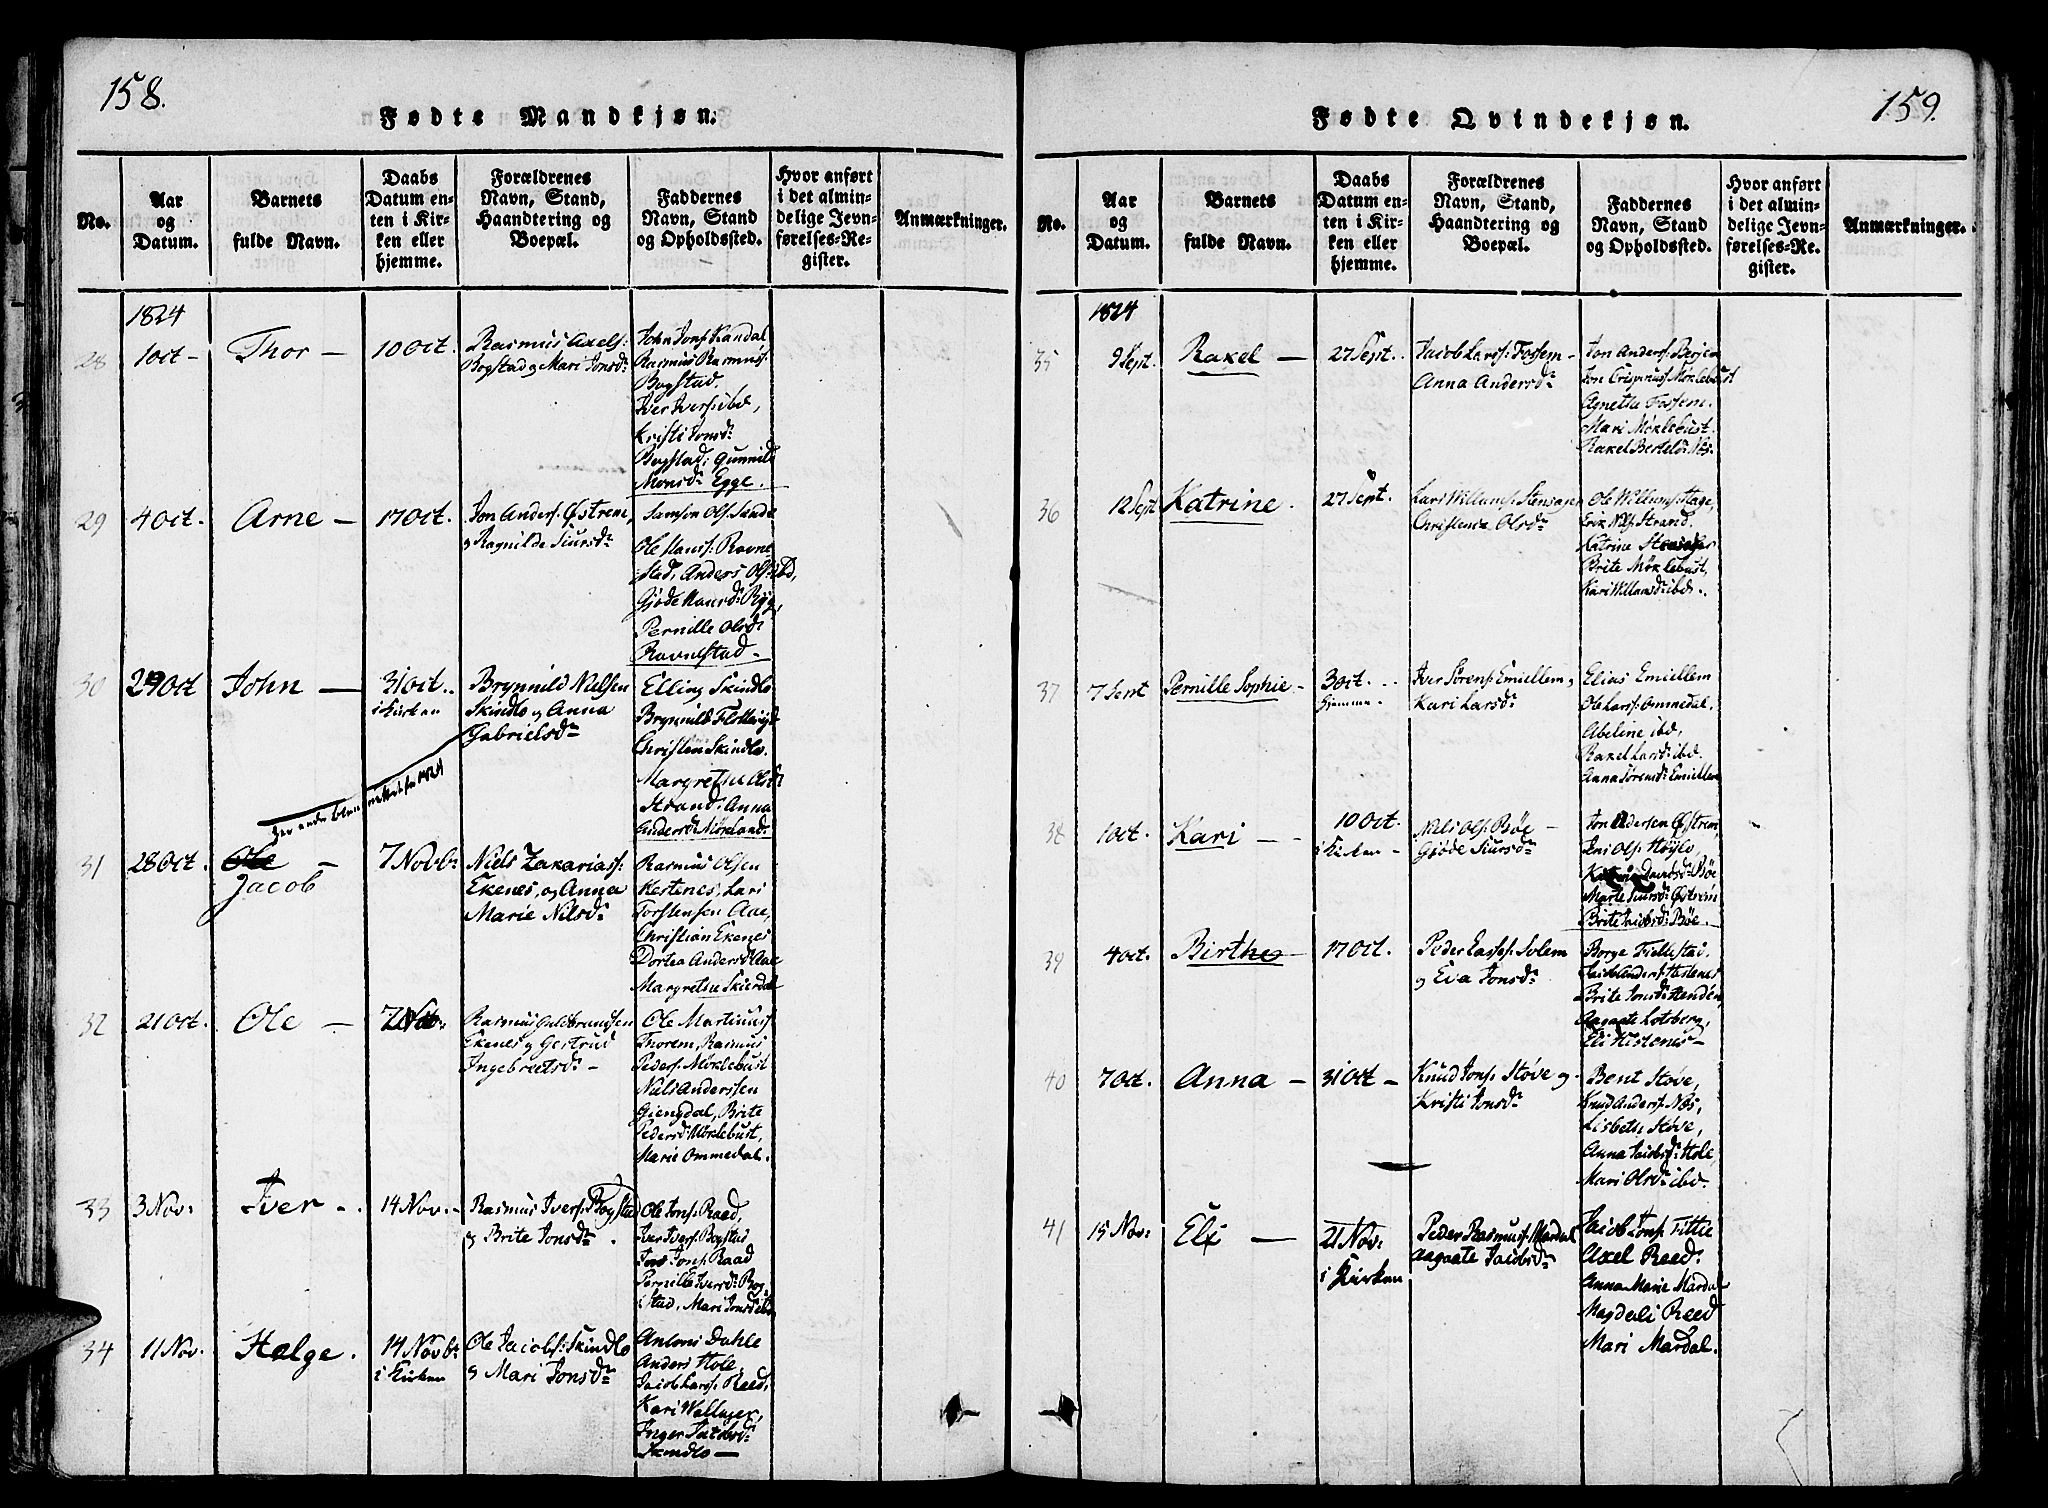 158.
Fødte Mandkjøn.
No.
Aar
og
Datum.
Barnets
fulde Navn.
Daabs
Datum en-
ten i Kir-
ken eller
hjemme.
Forældrenes
Navn, Stand,
Haandtering og
Boepæl.
Faddernes
Navn, Stand
og Opholdssted.
Hvor anført
i det almin-
delige Jevn-
førelses-Re-
gister.
Anmærkninger.
1824
28
1 Oct -
Thor -
10 Oct.
Rasmus Axels:
Bogstad og Mari Jonsd:
John Jons: Kandal
Rasmus Rasmus:
Bogstad.
Iver Ivers: ibd,
Kristi Jonsd:
Bogstad; Gunnild
Monsd: Egge.
29
4 Oct.
Arne -
17 Oct.
Jon Anders: Østrem,
og Ragnilde Siursd:
Samson Ols: Sande
Ole Hans: Ravne-
stad, Anders Ols: ibd,
Gjøde Hansd: Ryg,
Pernille Olsd:
Ravnestad -
30
29 Oct
John -
31 Oct.
i Kirken
Brynnild Nielsen
Skindlo og Anna
Gabrielsd:
Elling Skindlo
Brynnild
Christen Skindlo.
Margrethe Olsd:
Strand. Anna
Andersd: Mørkland:
31
28 Oct.
Ole -
Jacob
7 Novb:
Niels Zakarias:
Ekenes, og Anna
Marie Nilsd:
Rasmus Olsen
Hestenes, Lars
Torstensen Aae,
Christian Ekenes
Dortea Andersd Aae
Margrethe Skierdal
32
21 Oct.
Ole -
7 Nov:
Rasmus Guldbrandsen
Ekenes og Gertrud
Ingebretsd: -
Ole Martinus:
Thorem, Rasmus
Peders: Møklebust
Niels Anderssen
Giengdal, Brite
Pedersd: Møklebust,
Marie Ommedal.
33
3 Nov:
Iver -
14 Nov. -
Rasmus Ivers: Bogstad
og Brite Jonsd: .
Ole Jons: Raad,
Iver Ivers: Bogstad
Jons: Raad
Pernille Iversd: Bog-
stad, Mari Jonsd: ibd
34
11 Nov.
Helge.
14 Novb:
i Kirken
Ole Jacobs: Skindlo
og Mari Jonsd:
Antoni Dahle
Anders Hole,
Jacob Lars: Reed,
Kari
Inger Jacobsd:
Skindlo -
159.
Fødte Qvindekjøn.
No.
Aar
og
Datum.
Barnets
fulde Navn.
Daabs
Datum en-
ten i Kir-
ken eller
hjemme.
Forældrenes
Navn, Stand,
Haandtering og
Boepæl.
Faddernes
Navn, Stand
og Opholdssted.
Hvor anført
i det almin-
delige Jevn-
førelses-Re-
gister.
Anmærkninger.
1824
35
9 Sept.
Raxel -
27 Sept.
Jacob Lars: Fossem -
Anna Andersd:
Jon Anders: Berjem
Jon Crispinus: Møklebust
Agnethe Fossem.
Mari Møklebust.
Raxel Bertelsd: Nes.
36
12 Sept
Katrine.
27 Sept.
Lars Willums: Stensager
Christence Olsd:
Ole Willums: Hage,
Erik Nils: Strand.
Katrine
Brite Møklebust,
Kari Willumsd: ibd.
37
7 Sept
Pernille Sophie -
3 Oct.
hjemme.
Iver Sørens: Emiellem og
Kari Larsd:
Elias Emiellem
Ole Lars: Ommedal,
Abeline ibd,
Raxel Larsd: ibd.
Anna Sørensd: Emiellem
38
1 Oct.
Kari -
10 Oct.
i Kirken -
Niels Ols: Bøe -
Gjøde Siursd:
Jon Andersen Østrem,
Ols: Høylo,
Davidsd: Bøe
Marte Siursd: Østrem
Brite Jacobsd: Bøe.
39
4 Oct.
Birthe
17 Oct.
Peder Lasses: Solem
og Eva Jonsd:
Borge Fiellestad
Jacob Anders: Hestenes
Brite Jonsd: Henden
Aagaate Lotsberg,
Eli Hestenes -
40
7 Oct.
Anna -
31 Oct -
Knud Jons: Støve og
Kristi Jonsd:
Bent Støve,
Knud Anders: Nes,
Lisbeth Støve,
Anna Jacobsd: Hole,
Mari Olsd: ibd.
41
15 Nov:
Eli -
21 Nov:
i Kirken
Peder Rasmus: Mardal
Aagaate Jacobsd:
Jacob Jons: Fitie
Axel Reed:
Anna Marie Mardal
Magdeli Reed
Mari Mardal.